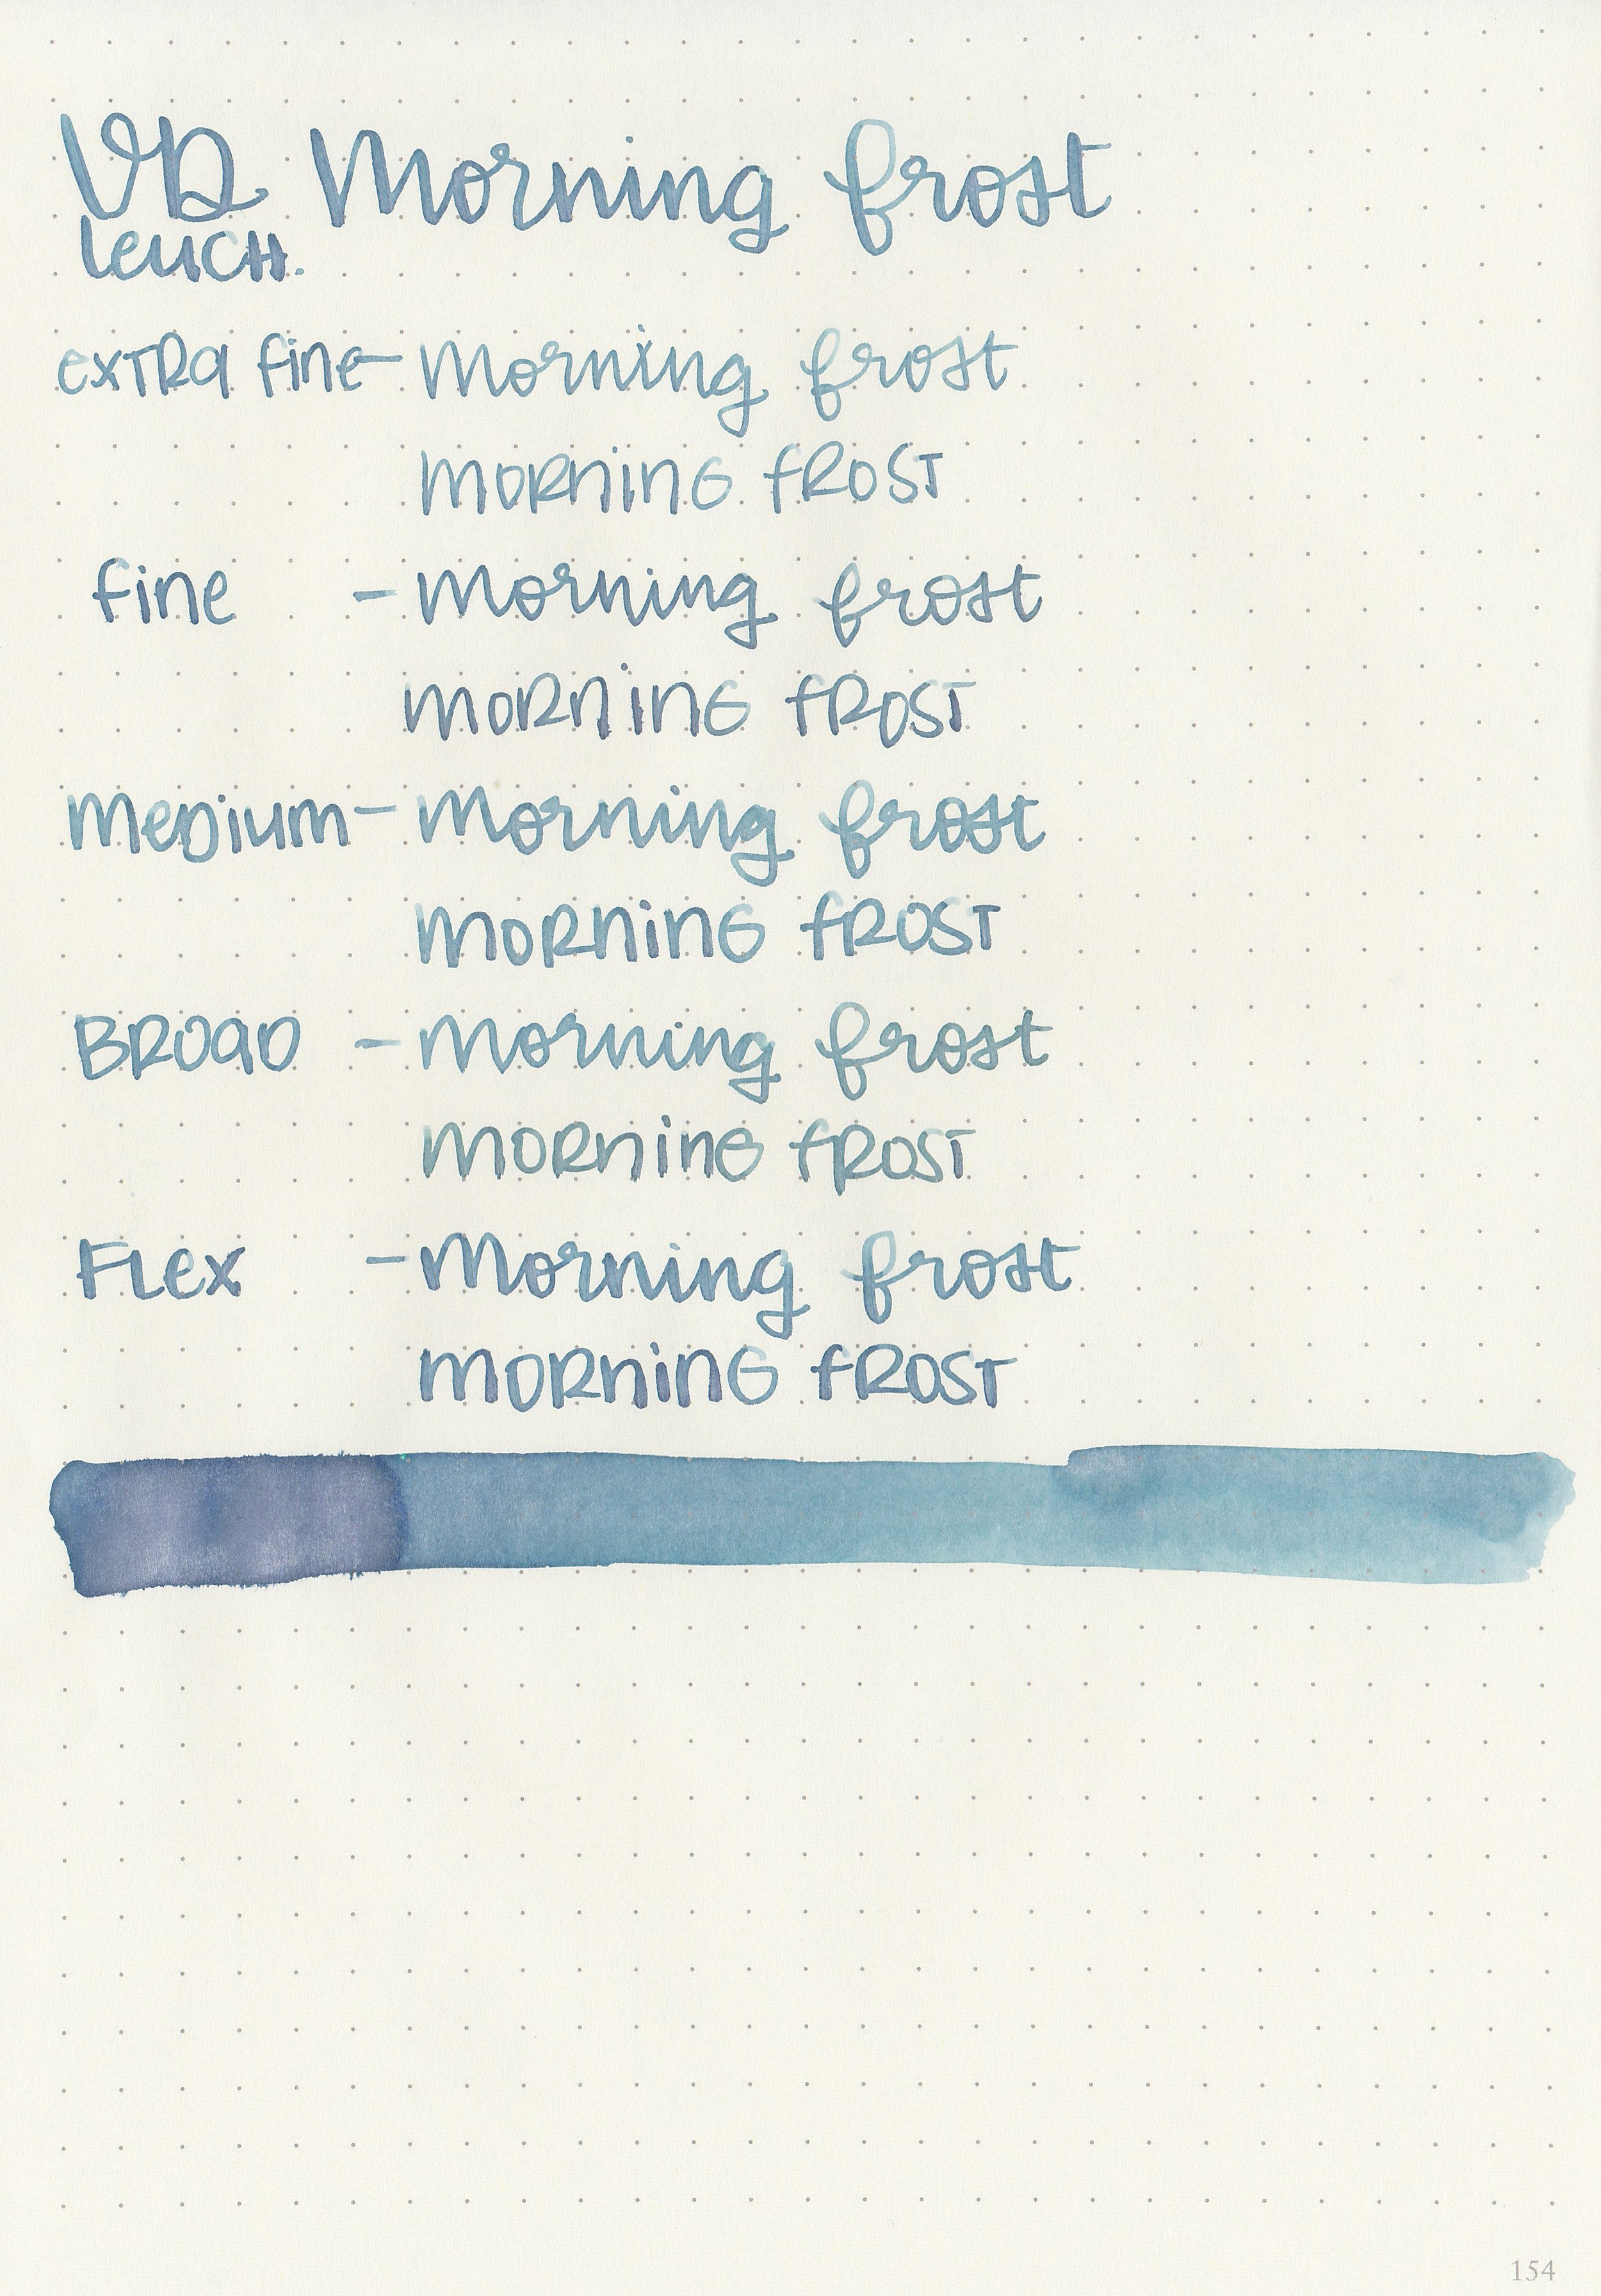 VD Morning frost
Leuch.
extra fine - Morning frost
morning frost
fine - Morning frost
morning frost
Medium - Morning frost
morning frost
Broad - Morning frost
morning frost
Flex - Morning frost
morning frost
154